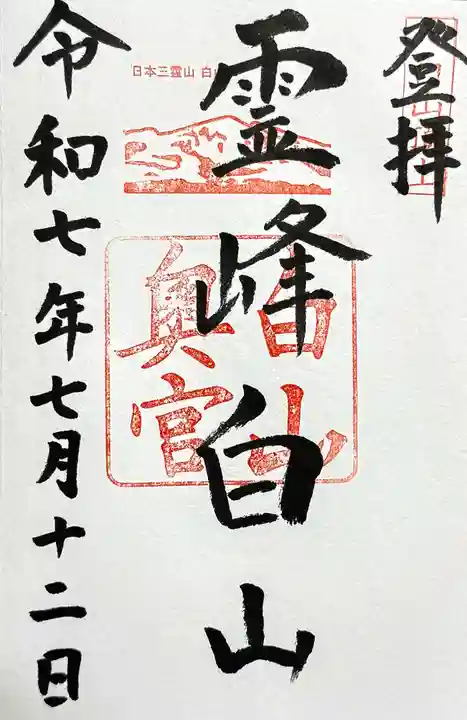 登拝
霊峰白山
令和七年七月十二日
日本三霊山 白
白山
奥宮